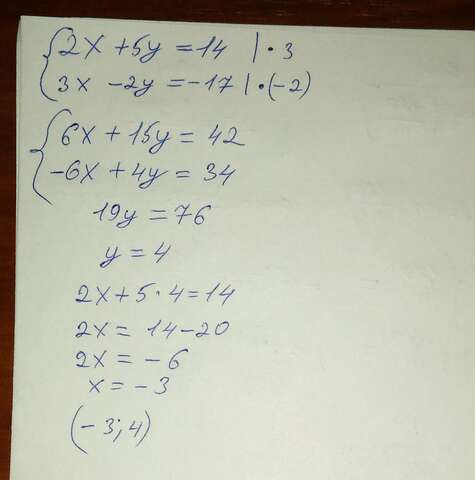 2x + 5y = 14 | · 3
3x - 2y = -17 | · (-2)
6x + 15y = 42
-6x + 4y = 34
19y = 76
y = 4
2x + 5 · 4 = 14
2x = 14 - 20
2x = -6
x = -3
(-3; 4)